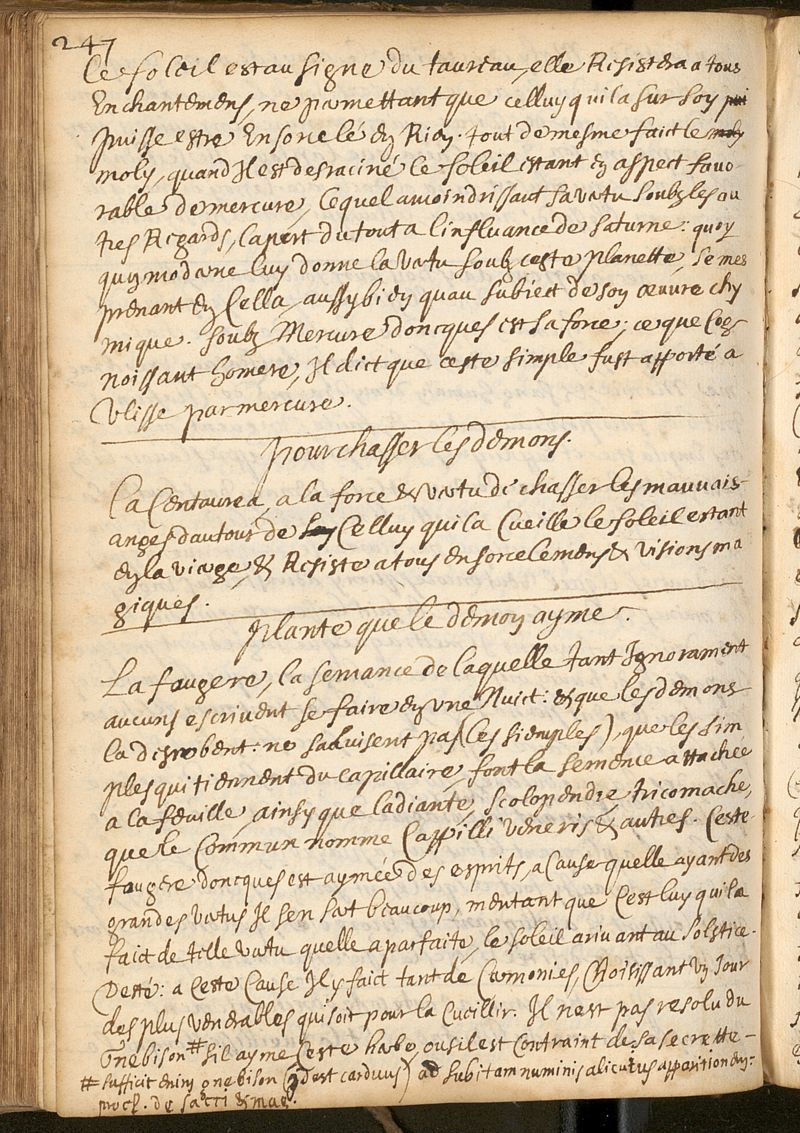 247
le soleil est au signe du taureau, elle Resistera a tous
Enchantemens, ne parmettant que celluy qui la sur soy
puisse estre Ensorcelé en Rien. tout de mesme faict le
moly, quand Il est desraciné le soleil estant en aspect favo
rable de mercure, lequel amoindrissant sa vertu soubz les au
tres Regards, la pert du tout a l'influance de saturne: quoy
qu'un moderne luy donne la vertu soubz ceste planette, se mes
prenant en Cella, aussy bien quau subiect de son œuvre chy
mique. soubz Mercure doncques est sa force; ce que Cog
noissant homere, Il dict que ceste simple fust apporté a
Ulisse par mercure.
pour chasser les demons.
la Centaurea, a la force & vertu de chasser les mauvais
anges dautour de Celluy qui la Cueille le soleil estant
en la vierge, & Resiste a tous ensorcelemens & visions ma
giques.
plante que le demon ayme.
La faugere, la semance de laquelle tant Ignorament
aucuns escrivent se faire en une Nuict: & que les demons
la desrobent: ne sadvisent pas (les siemples), que les sim
ples qui tiennent du capillaire, font la semence attachée
a la feuille, ainsy que ladiante, scolopendre, tricomache,
que le Commun nomme Cappilli veneris & autres. Ceste
faugere doncques est aymée des esprits, a Cause quelle ayant des
grandes vertus Il sen sert beaucoup, mentant que Cest luy qui la
faict de telle vertu quelle a parfaite, le soleil arivant au solstice
Desté: a Ceste Cause Il y faict tant de Ceremonies, Choisissant un Jour
des plus venerables qui soit pour la Cueillir. Il nest pas resolu du
Onebison # sil ayme Ceste herbe, ou sil est contraint de sa secrette
# sufficit enim onebison (id est carduus) ad subitam numinis alicuius apparitionem:
procl. de sacri & mag.